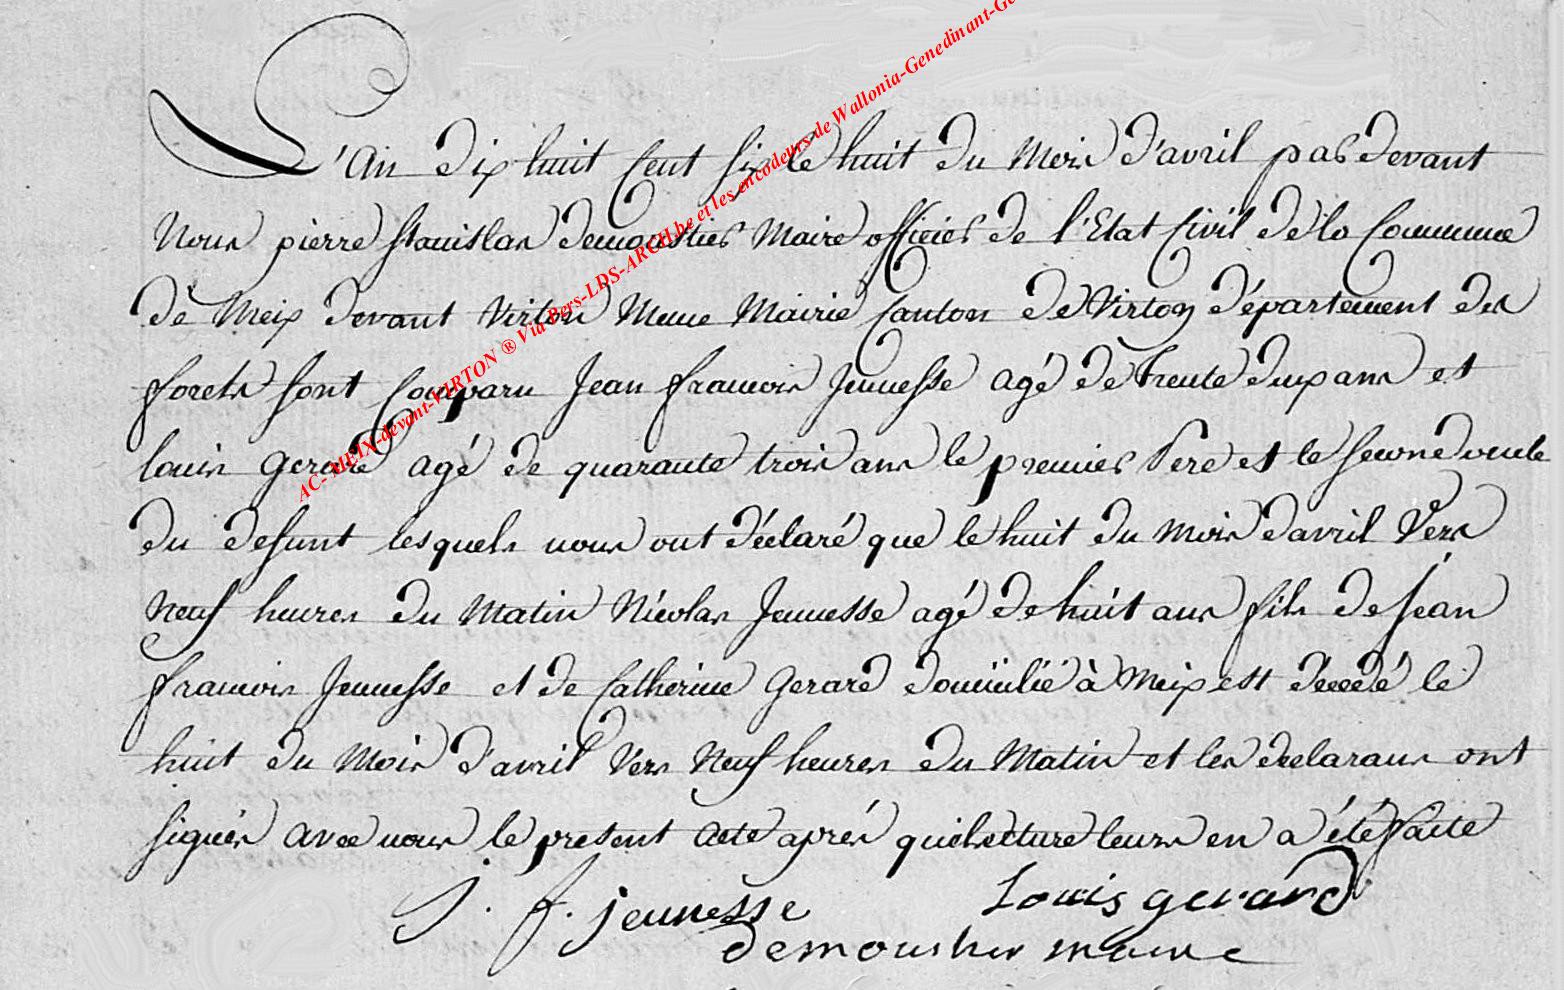 L'an dix huit cent six le huit du mois d'avril pas devant
nous pierre stanislas demoustier maire officier de l'Etat Civil de la Commune
de Meix devant Virton Meme Mairie Canton de Virton département des
forets sont comparu Jean francois Jeunesse agé de trente deux ans et
louis gerard agé de quarante trois ans le premier Pere et le second oncle
du defunt lesquels nous ont déclaré que le huit du mois d'avril Vers
neuf heures du matin Nicolas Jeunesse agé de huit ans fils de Jean
francois Jeunesse et de Catherine gerard domicilié à Meix est décédé le
huit du mois d'avril Vers neuf heures du Matin et les declarans ont
signés avec nous le present acte aprés que lecture leurs en a été faite
j. f. jeunesse Louis gerard
demoustier maire
AC-MEIX-devant-VIRTON ® Via Bers-LDS-ARCH.be et les encodeurs de Wallonia-Genedinant-Ge